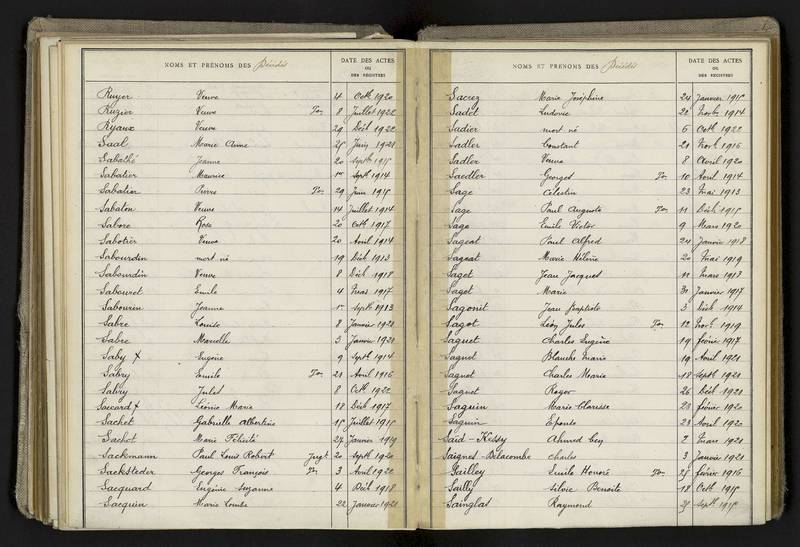 NOMS ET PRÉNOMS DES Décédés
DATE DES ACTES
OU
DES REGISTRES
Ruyer Veuve 4 Octb 1920
Ruzier Veuve Ton 8 Juillet 1922
Ryaux Veuve 29 Déct 1922
Saal Marie Anne 25 Juin 1921
Sabathé Jeanne 20 Septb 1915
Sabatier Maurice 1er Septb 1914
Sabatier Pierre Ton 29 Juin 1915
Sabaton Veuve 14 Juillet 1914
Sabore Rose 20 Octb 1917
Sabotier Veuve 20 Avril 1914
Sabourdin mort né 19 Déct 1913
Sabourdin Veuve 8 Déct 1918
Sabouret Emile 4 Mars 1917
Sabourin Jeanne Septb 1913
Sabre Louise 8 Janvier 1921
Sabre Marielle 3 Janvier 1921
Saby Eugène 9 Septb 1914
Sabry Emile Ton 21 Avril 1916
Sabry Jules 8 Octb 1922
Saccard Léonie Marie 18 Déct 1917
Sachet Gabrielle Albertine 15 Juillet 1915
Sachot Marie Félicité 27 Janvier 1919
Sackmann Paul Louis Robert Jugt 20 Septb 1920
Sacksteder Georges François Ton 3 Avril 1920
Sacquard Eugénie Suzanne 4 Déct 1918
Sacquin Marie Louise 22 Janvier 1921
NOMS ET PRÉNOMS DES Décédés
DATE DES ACTES
OU
DES REGISTRES
Sacrez Marie Joséphine 24 Janvier 1915
Sadet Ludovic 22 Novb 1914
Sadier mort né 6 Octb 1922
Sadler Constant 21 Novb 1916
Sadler Veuve 8 Avril 1920
Saedler Georges Ton 10 Avril 1914
Sage Célestin 23 Mai 1913
Sage Paul Auguste Ton 11 Déct 1915
Sage Emile Victor 9 Mars 1920
Sageat Paul Alfred 24 Janvier 1918
Sageat Marie Hélène 20 Mai 1919
Saget Jean Jacques 11 Mars 1918
Saget Marie 31 Janvier 1917
Sagonit Jean Baptiste 3 Déct 1914
Sagot Léon Jules Ton 12 Novb 1919
Saguet Charles Eugène 19 février 1917
Sagnet Blanche Marie 19 Avril 1921
Sagnet Charles Marie 18 Septb 1921
Sagnet Roger 26 Déct 1921
Saguin Marie Clarisse 23 février 1920
Saguin Epouse 21 Avril 1920
Saïd-Kessy Ahmed Ley 2 Mars 1921
Saignes-Delacombe Charles 3 Janvier 1921
Seilley Emile Honoré Ton 25 février 1916
Sailly Silvie Benoite 18 Octb 1915
Sainglas Raymond 25 Septb 1915